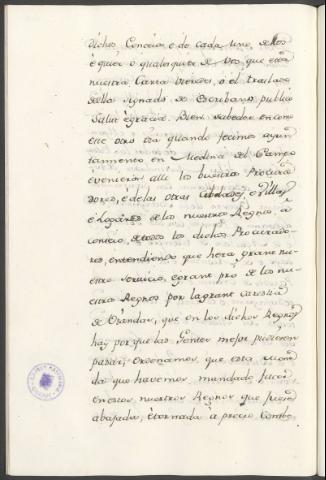 dichos Concejos é do cada uno de llos
é quier ó qualesquier de vos que esta
nuestra Carta vieredes, ó el traslado
della signado de Escribano publico
Salut é gracia. Bien sabedes en como
este otro dia quando fecimos ayun
tamiento en Medina del Campo
é venieron alli los buestros Procura
dores, é de las otras Cibdades, é Villas,
é Logares de los nuestros Regnos, á
consejo, de todos los dichos Procurado
res, entendiendo que hera grant nu
estro servicio, é grant pró de los nu
estros Regnos por la grant carestia
de Viandas, que en los dichos Regnos
hay porque las Gentes mejor pudiesen
pasar; Ordenamos, que esta mone
da que havemos mandado facer
en estos nuestros Regnos que fuese
abajada, é tornada á precio combe